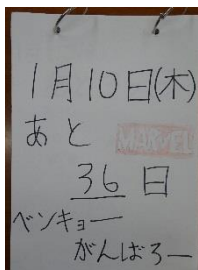 1月10日(木)
あと MARVEL
36日
ベンキョー
がんばろー